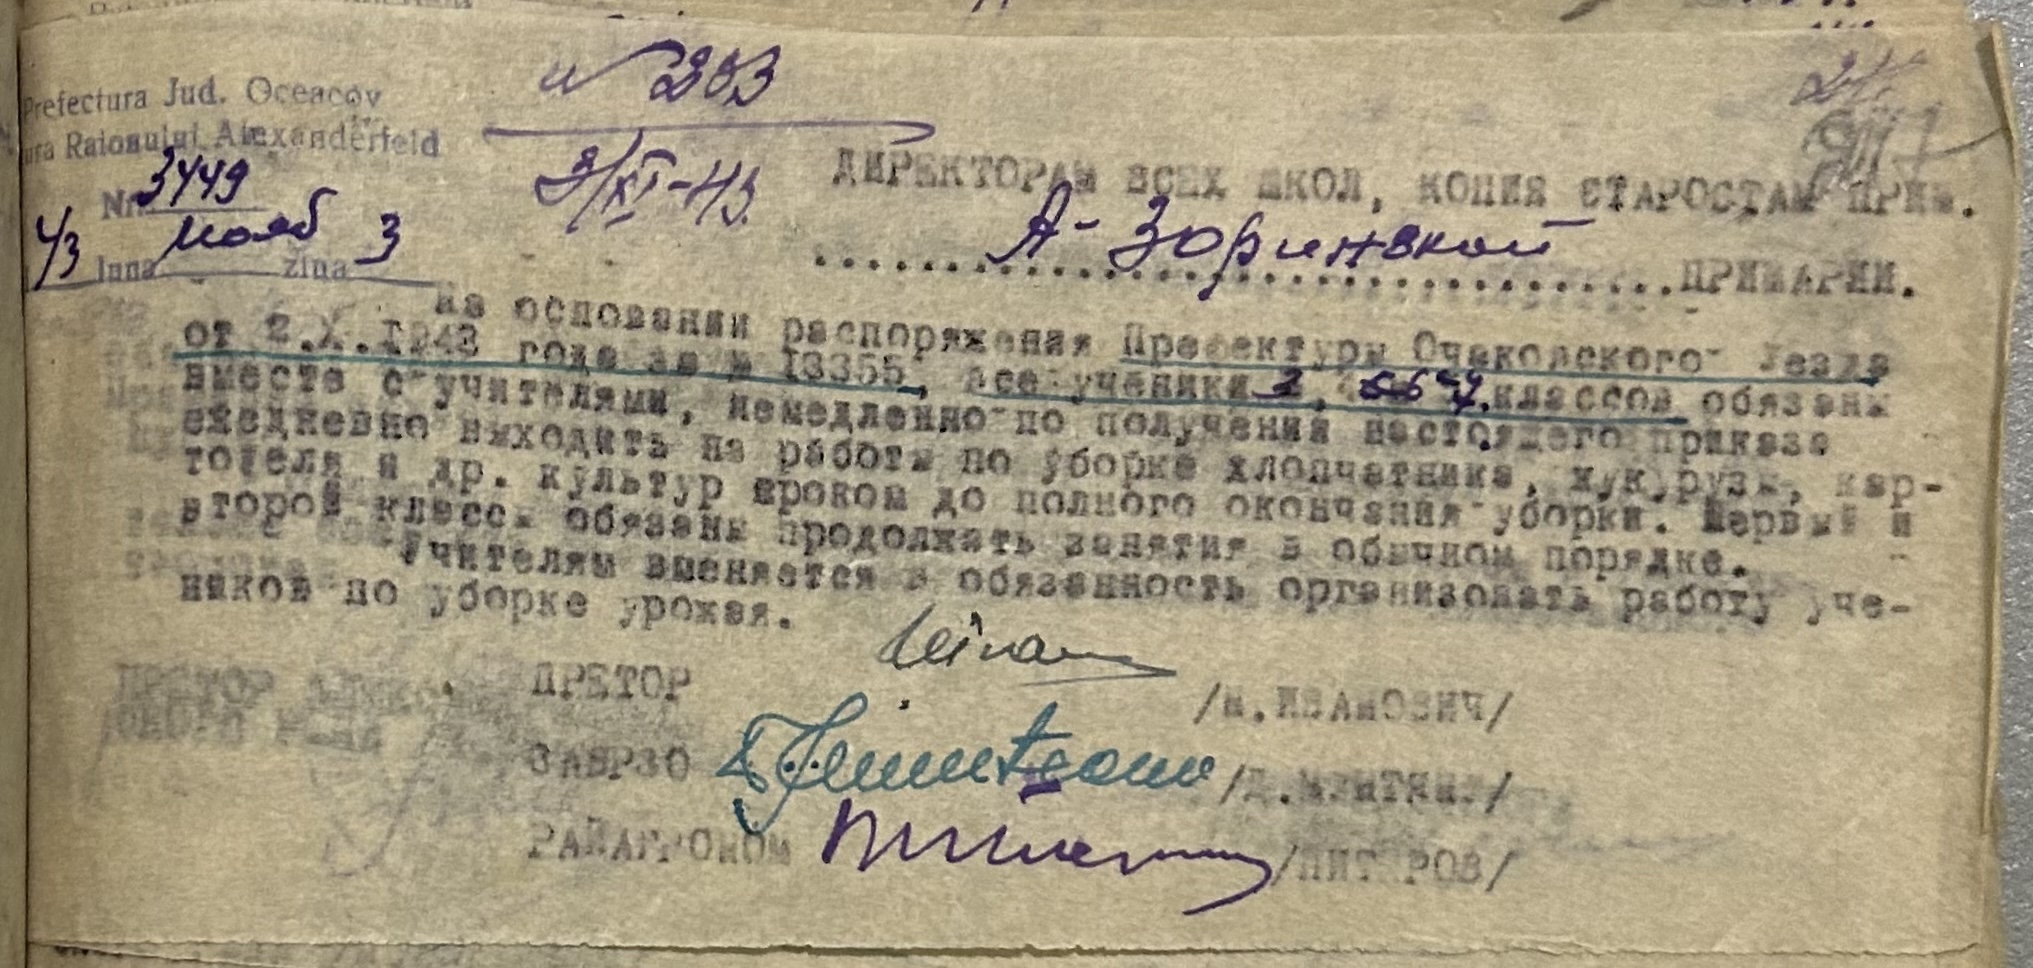 Prefectura Jud. Oceacov
ura Raionului Alexanderfeld
Nr. 3449
43 luna нояб ziua 3
№ 283
9/XI-43.
ДИРЕКТОРАМ ВСЕХ ШКОЛ, КОПИЯ СТАРОСТАМ ПРИМ.
А-Зориновкой
ПРИМАРИИ.
На основании распоряжения Префектуры Очаковского Уезда
от 2.X.1943 года за № 13355, все ученики 3, классов обязаны
вместе с учителями, немедленно по получении настоящего приказа
ежедневно выходить на работы по уборке хлопчатника, кукурузы, кар-
тофеля и др. культур сроком до полного окончания уборки. Первый и
второй классы обязаны продолжать занятия в обычном порядке.
Учителям вменяется в обязанность организовать работу уче-
ников по уборке урожая.
ПРЕТОР /И.ИВАНОВИЧ/
ЗАВРЗО
РАЙАГРОНОМ /ПИТАРОВ/